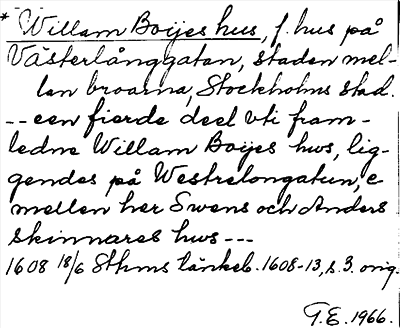 * Willam Boijes hus, f. hus på
Västerlånggatan, staden mel-
lan broarna, Stockholms stad.
-- een fierde deel vti fram-
ledne Willam Boijes hws, lig-
gendes på Westrelongatun, e
mellen her Swens och Anders
skinnares hws ---
1608 18/6 Sthms tänkeb. 1608-13, s. 3. orig.
G.E. 1966.